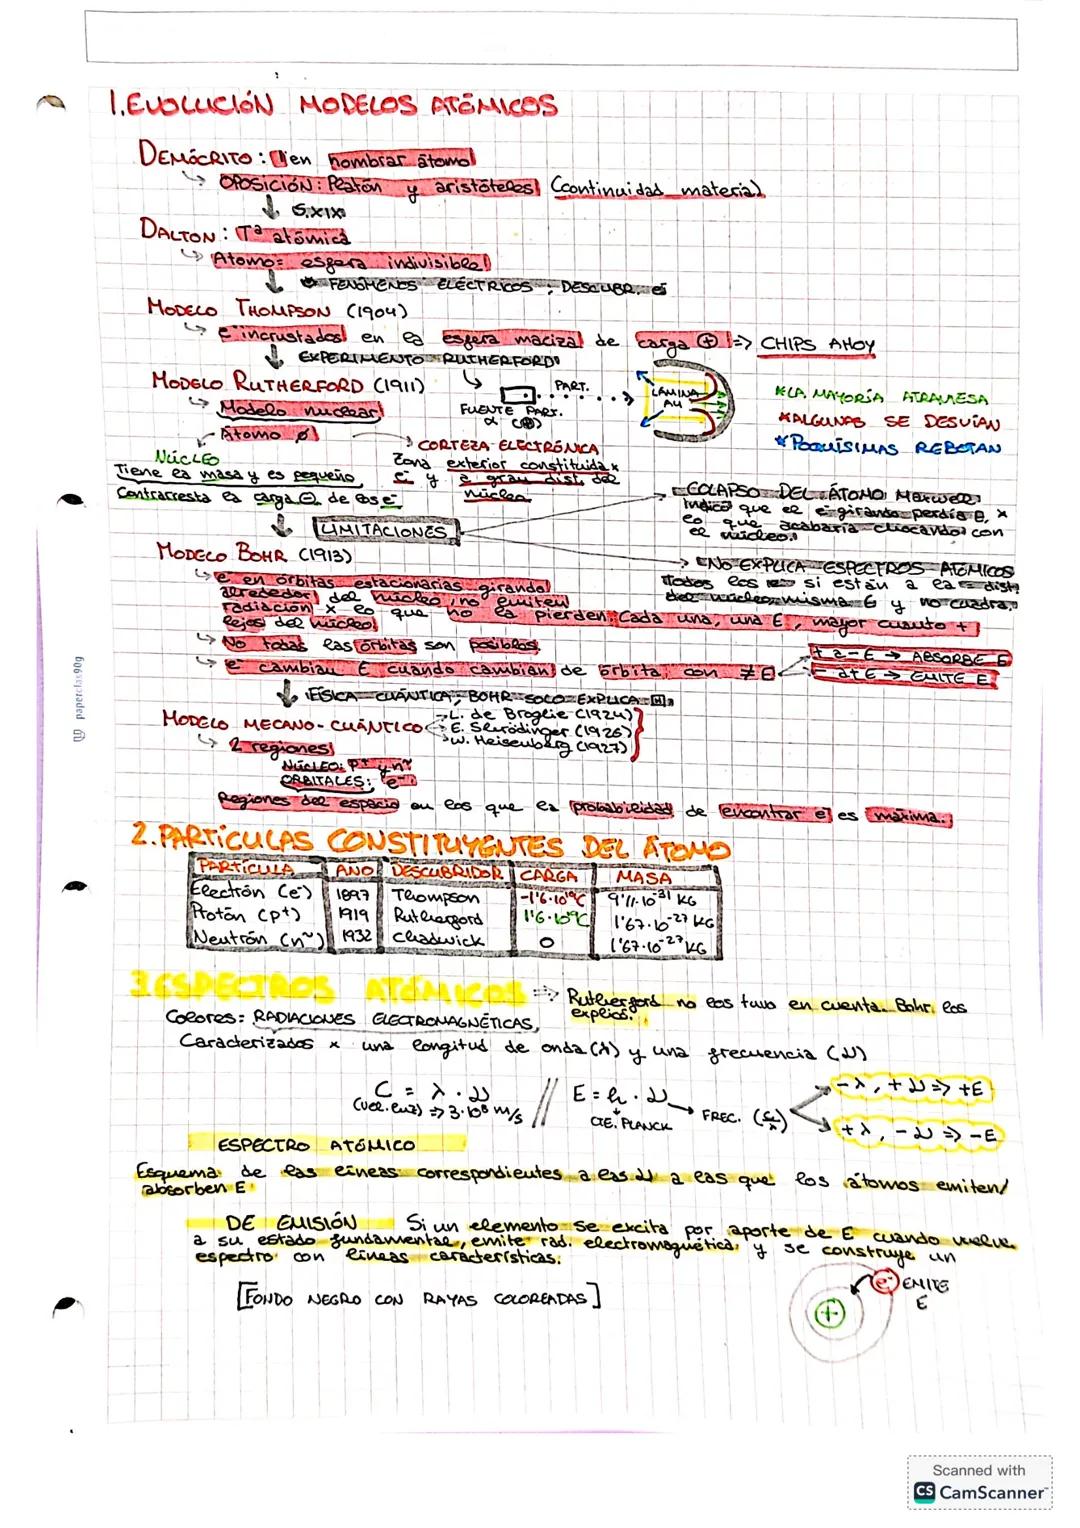 1. EVOLUCIÓN MODELOS ATÓMICOS
DEMÓCRITO: 1º en nombrar átomo
↳ OPOSICIÓN: Platón y aristóteles (continuidad materia)
↓ S.XIX
DALTON: Tª atómica
↳ Átomo= esfera indivisible
↓ FENÓMENOS ELÉCTRICOS, DESCUBR. e⁻
MODELO THOMPSON (1904)
↳ e⁻ incrustados en la esfera maciza de carga ⊕ => CHIPS AHOY
↓ EXPERIMENTO RUTHERFORD
MODELO RUTHERFORD (1911)
↳ Modelo nuclear
Átomo
FUENTE PART. α (⊕)
PART.
LÁMINA AU
*LA MAYORÍA ATRAVIESA
*ALGUNAS SE DESVÍAN
*POQUÍSIMAS REBOTAN
NÚCLEO
Tiene la masa y es pequeño
Contrarresta la carga ⊖ de los e⁻
CORTEZA ELECTRÓNICA
Zona exterior constituida x
e⁻ y a gran dist. del
núcleo
↓ LIMITACIONES
COLAPSO DEL ÁTOMO: Maxwell
indicó que el e⁻ girando perdía E, x
lo que acabaría chocando con
el núcleo.
NO EXPLICA ESPECTROS ATÓMICOS
todos los e⁻ si están a la = dist.
del núcleo, misma E y no cuadra.
MODELO BOHR (1913)
↳ e⁻ en órbitas estacionarias girando
alrededor del núcleo, no emiten
radiación x lo que no la pierden. Cada una, una E, mayor cuanto +
lejos del núcleo
↳ No todas las órbitas son posibles.
↳ e⁻ cambian E cuando cambian de órbita, con ≠ E
+ a - E → ABSORBE E
- a + E → EMITE E
↓ FÍSICA CUÁNTICA, BOHR SOLO EXPLICA H
MODELO MECANO-CUÁNTICO
L. de Broglie (1924)
E. Shrödinger (1926)
W. Heisenberg (1927)
↳ 2 regiones
NÚCLEO: p⁺ y n
ORBITALES: e⁻
Regiones del espacio en los que la probabilidad de encontrar e⁻ es máxima.
2. PARTÍCULAS CONSTITUYENTES DEL ÁTOMO
PARTÍCULA AÑO DESCUBRIDOR CARGA MASA
Electrón (e⁻) 1897 Thompson -1'6·10⁻¹⁹C 9'11·10⁻³¹ KG
Protón (p⁺) 1919 Rutherford 1'6·10⁻¹⁹C 1'67·10⁻²⁷ KG
Neutrón (n~) 1932 Chadwick 0 1'67·10⁻²⁷ KG
3. ESPECTROS ATÓMICOS => Rutherford no los tuvo en cuenta. Bohr los
explicó.
Colores: RADIACIONES ELECTROMAGNÉTICAS,
Caracterizados x una longitud de onda (λ) y una frecuencia (ν)
C = λ · ν // E = h · ν → FREC. (c/λ)
(vel. luz) => 3·10⁸ m/s
CTE. PLANCK
-λ, +ν => +E
+λ, -ν => -E
ESPECTRO ATÓMICO
Esquema de las líneas correspondientes a las ν a las que los átomos emiten/
absorben E
DE EMISIÓN Si un elemento se excita por aporte de E cuando vuelve
a su estado fundamental, emite rad. electromagnética, y se construye un
espectro con líneas características.
[FONDO NEGRO CON RAYAS COLOREADAS]
+
e⁻ EMITE
E
paperclas90g
Scanned with
CS CamScanner